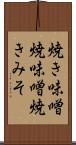 焼き味噌
焼味噌焼
きみそ